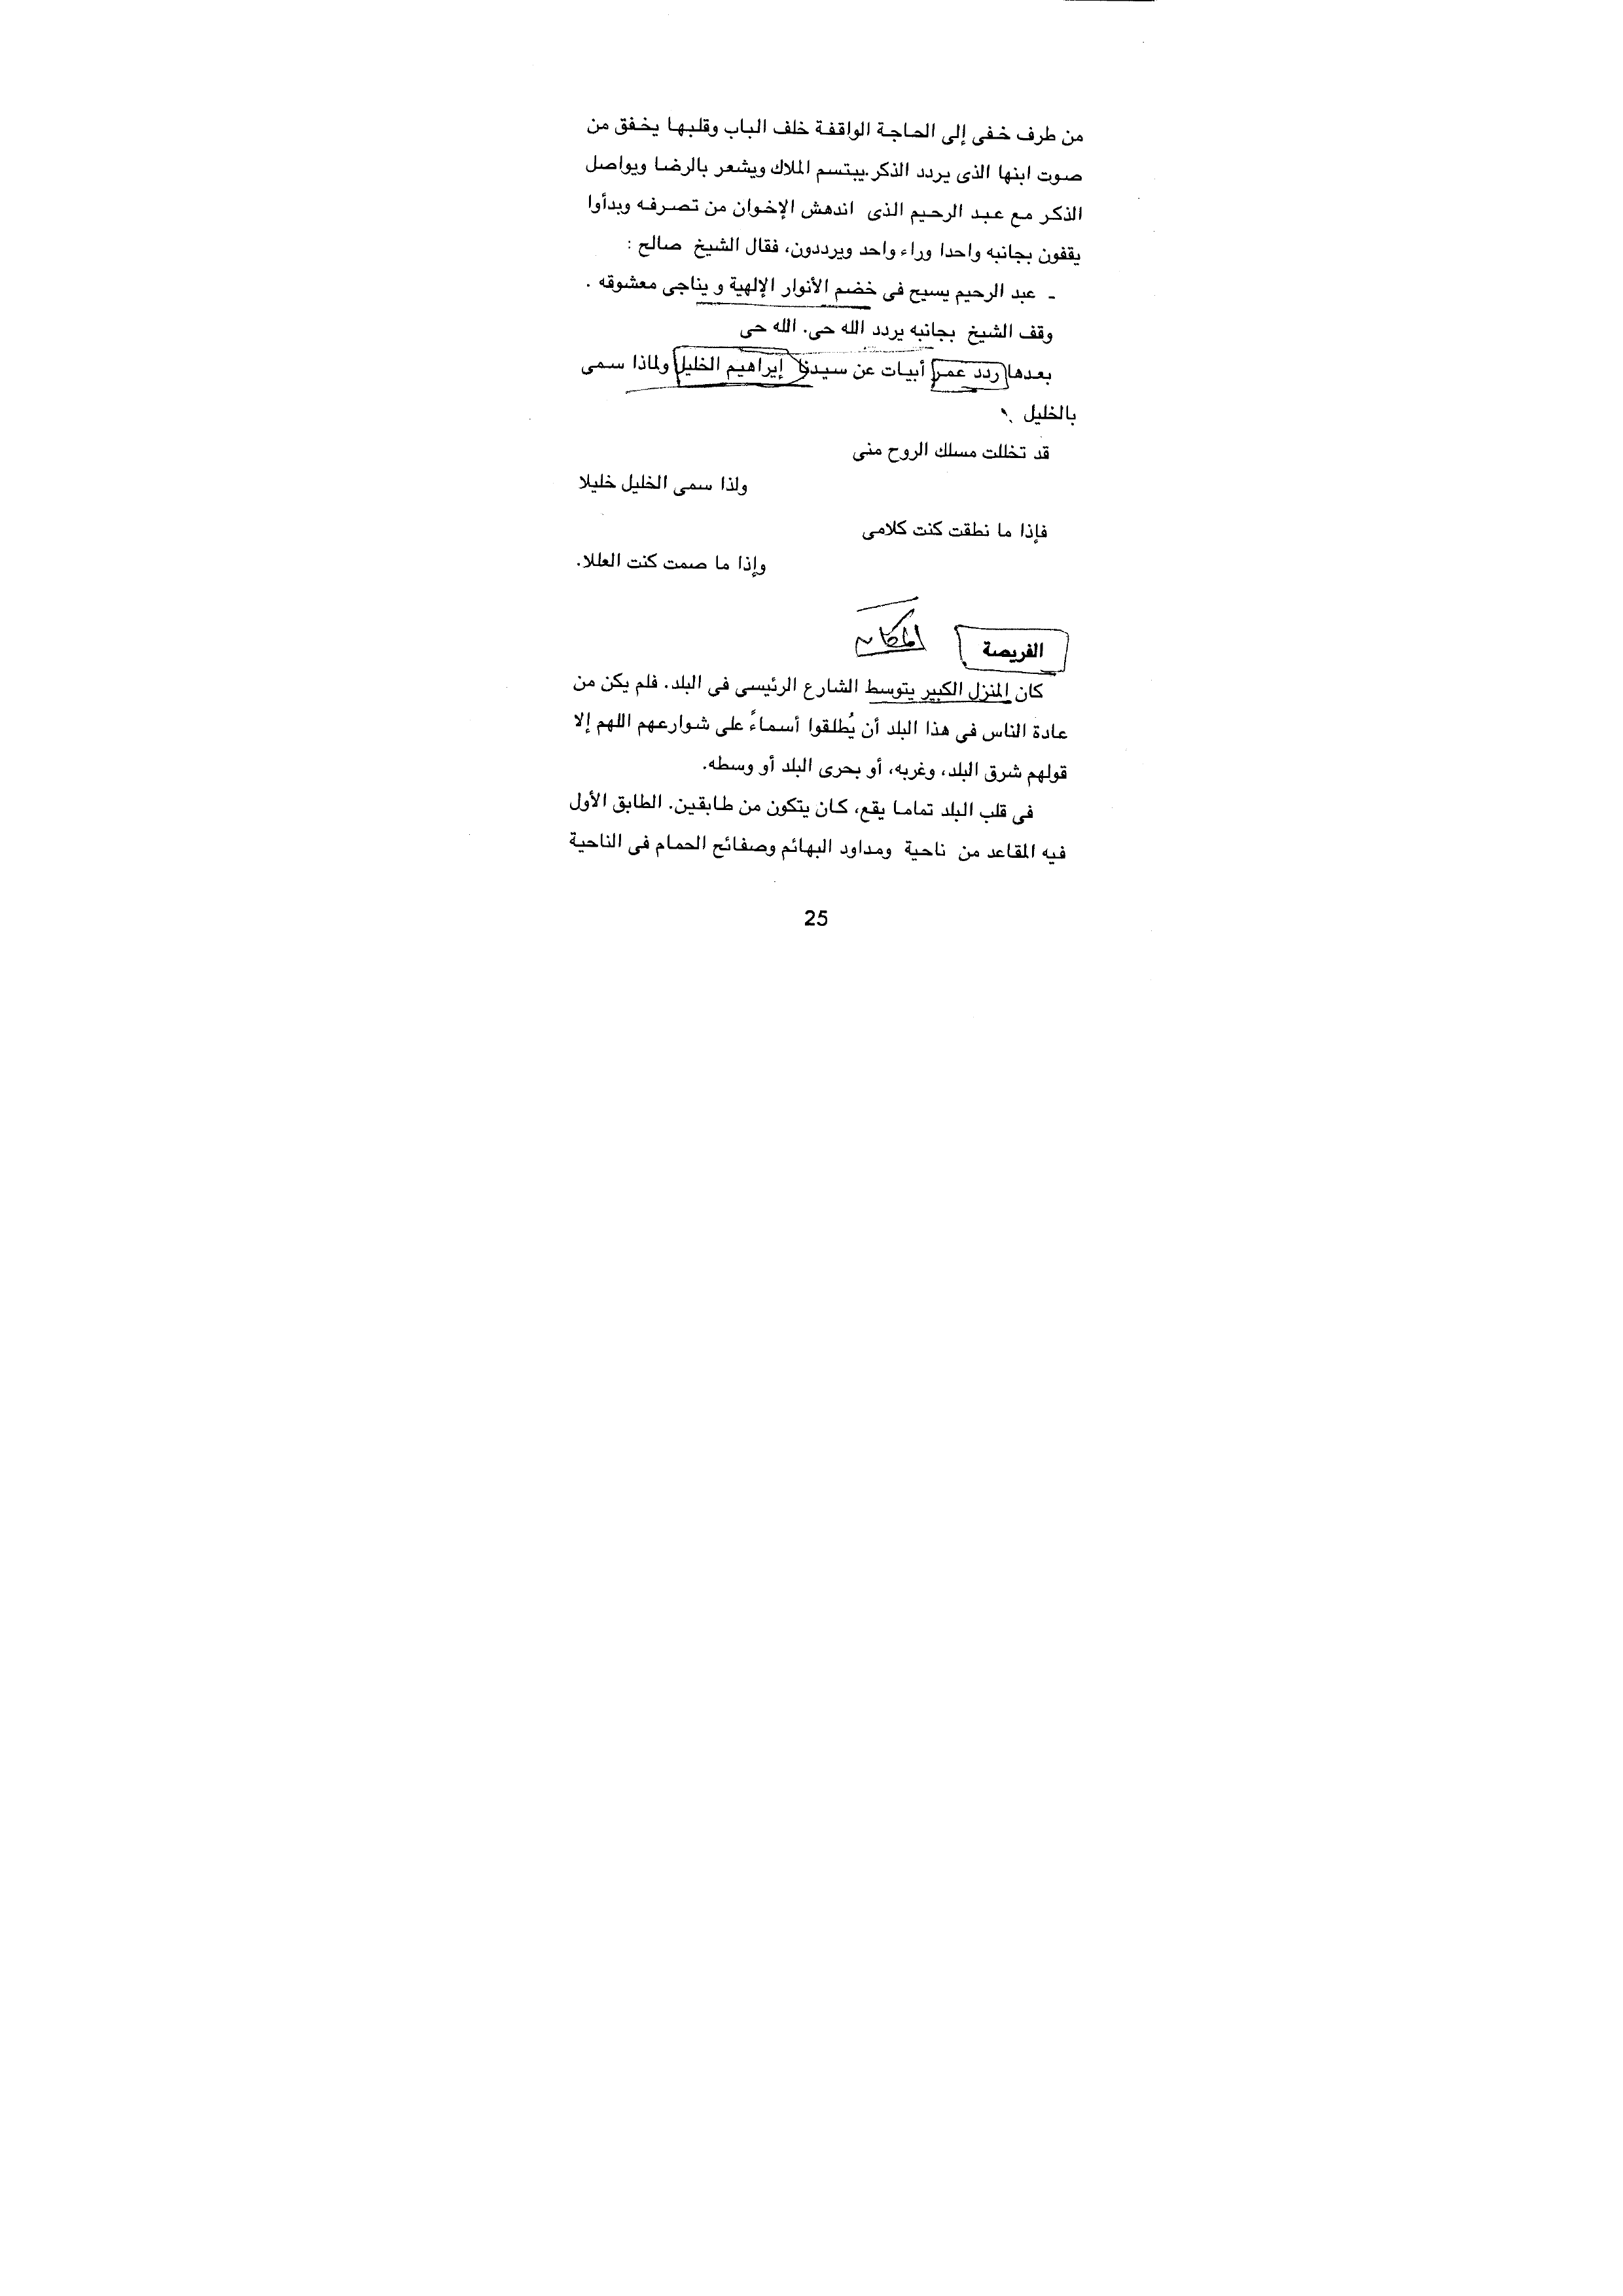 من طرف خفى إلى الحاجة الواقفة خلف الباب وقلبها يخفق من
صوت ابنها الذى يردد الذكر.يبتسم الملاك ويشعر بالرضا ويواصل
الذكر مع عبد الرحيم الذى اندهش الإخوان من تصرفه وبدأوا
يقفون بجانبه واحدا وراء واحد ويرددون، فقال الشيخ صالح :
- عبد الرحيم يسيح فى خضم الأنوار الإلهية و يناجى معشوقه .
وقف الشيخ بجانبه يردد الله حى. الله حى
بعدها ردد عمر أبيات عن سيدنا إبراهيم الخليل ولماذا سمى
بالخليل .
قد تخللت مسلك الروح منى
ولذا سمى الخليل خليلا
فإذا ما نطقت كنت كلامى
وإذا ما صمت كنت العللا.
الفريصة المكان
كان المنزل الكبير يتوسط الشارع الرئيسى فى البلد. فلم يكن من
عادة الناس فى هذا البلد أن يُطلقوا أسماءً على شوارعهم اللهم إلا
قولهم شرق البلد، وغربه، أو بحرى البلد أو وسطه.
فى قلب البلد تماما يقع، كان يتكون من طابقين. الطابق الأول
فيه المقاعد من ناحية ومداود البهائم وصفائح الحمام فى الناحية
25